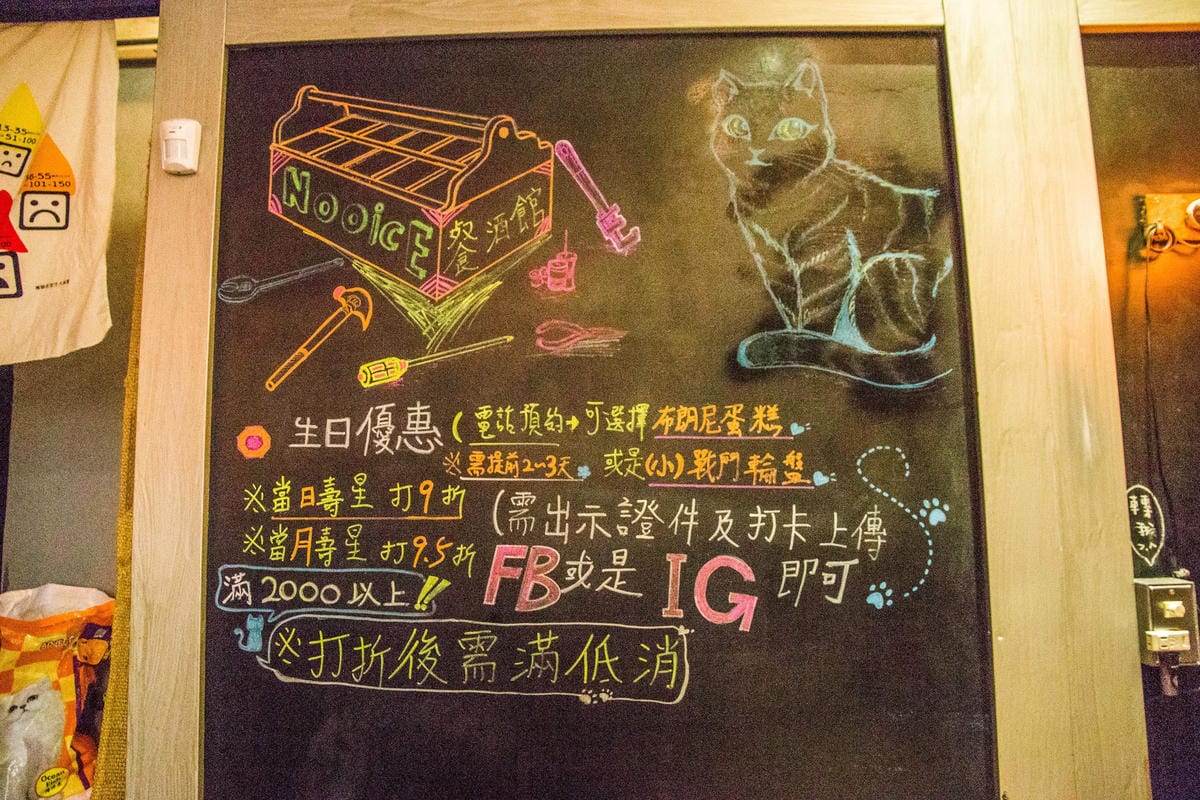 NooicE
餐酒館
生日優惠 (電話預約→可選擇布朗尼蛋糕
※需提前2~3天 或是(小)戰鬥輪盤
※當日壽星 打9折
※當月壽星 打9.5折
(需出示證件及打卡上傳
FB或是 IG 即可
滿2000以上!!
※打折後需滿低消
13-35
51-100
-55
101-150
Ocean
Fish